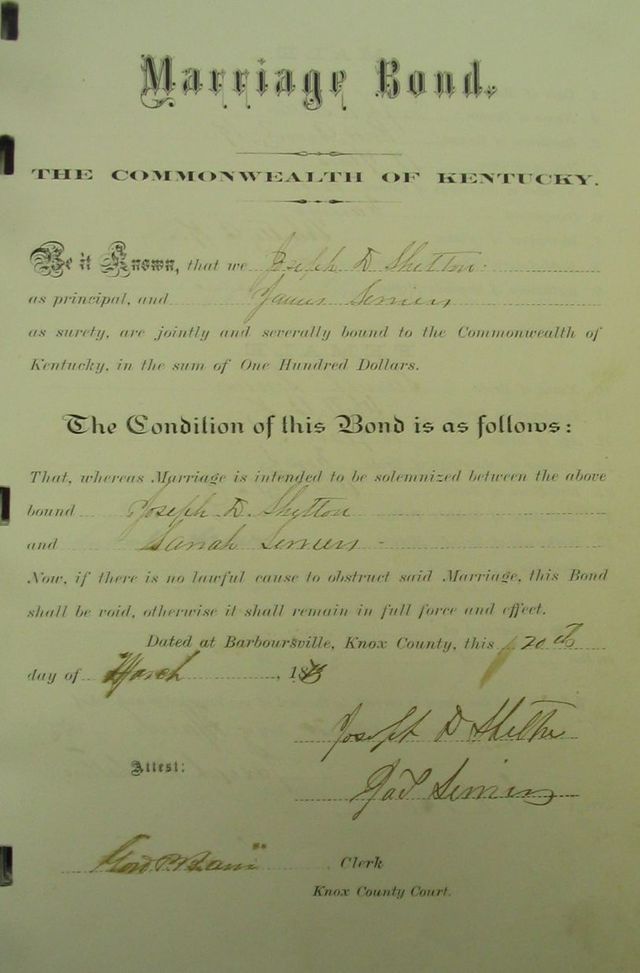 Marriage Bond.
THE COMMONWEALTH OF KENTUCKY.
Be it Known, that we Joseph D Shelton
as principal, and James
as surety, are jointly and severally bound to the Commonwealth of
Kentucky, in the sum of One Hundred Dollars.
The Condition of this Bond is as follows:
That, whereas Marriage is intended to be solemnized between the above
bound Joseph D. Shelton
and Sarah
Now, if there is no lawful cause to obstruct said Marriage, this Bond
shall be void, otherwise it shall remain in full force and effect.
Dated at Barboursville, Knox County, this 20th
day of March, 18
Joseph D Shelton
Attest:
Clerk
Knox County Court.